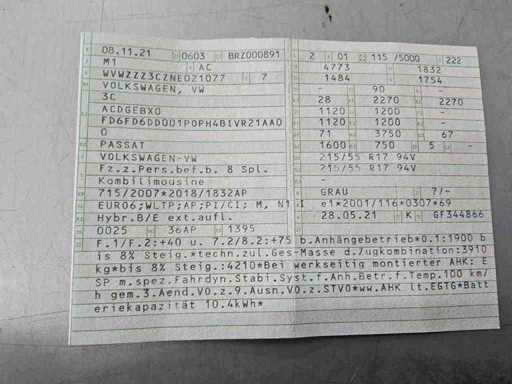 08.11.21 0603 BRZ000891 2 01 115 /5000 222
M1 AC 4773 1832
WVWZZZ3CZNE021077 7 1484 1754
VOLKSWAGEN, VW - 90 -
3C 28 2270 2270
ACDGEBX0 1120 1200 -
FD6FD6DD001P0PH4BIVR21AA0 1120 1200 -
0 71 3750 67
PASSAT 1600 750 5 -
VOLKSWAGEN-VW 215/55 R17 94V
Fz.z.Pers.bef.b. 8 Spl. 215/55 R17 94V
Kombilimousine -
715/2007*2018/1832AP GRAU ?/-
EURO6;WLTP;AP;PI/CI; M, N1 I e1*2001/116*0307*69
Hybr.B/E ext.aufl. 28.05.21 K GF344866
0025 36AP 1395
F.1/F.2:+40 u. 7.2/8.2:+75 b.Anhängebetrieb*0.1:1900 b
is 8% Steig.*techn.zul.Ges-Masse d.Zugkombination:3910
kg*bis 8% Steig.:4210*Bei werkseitig montierter AHK: E
SP m.spez.Fahrdyn.Stabi.Syst.f.Anh.Betr.f.Temp.100 km/
h gem.3.Aend.VO.z.9.Ausn.VO.z.STVO*ww.AHK lt.EGTG*Batt
eriekapazität 10.4kWh*